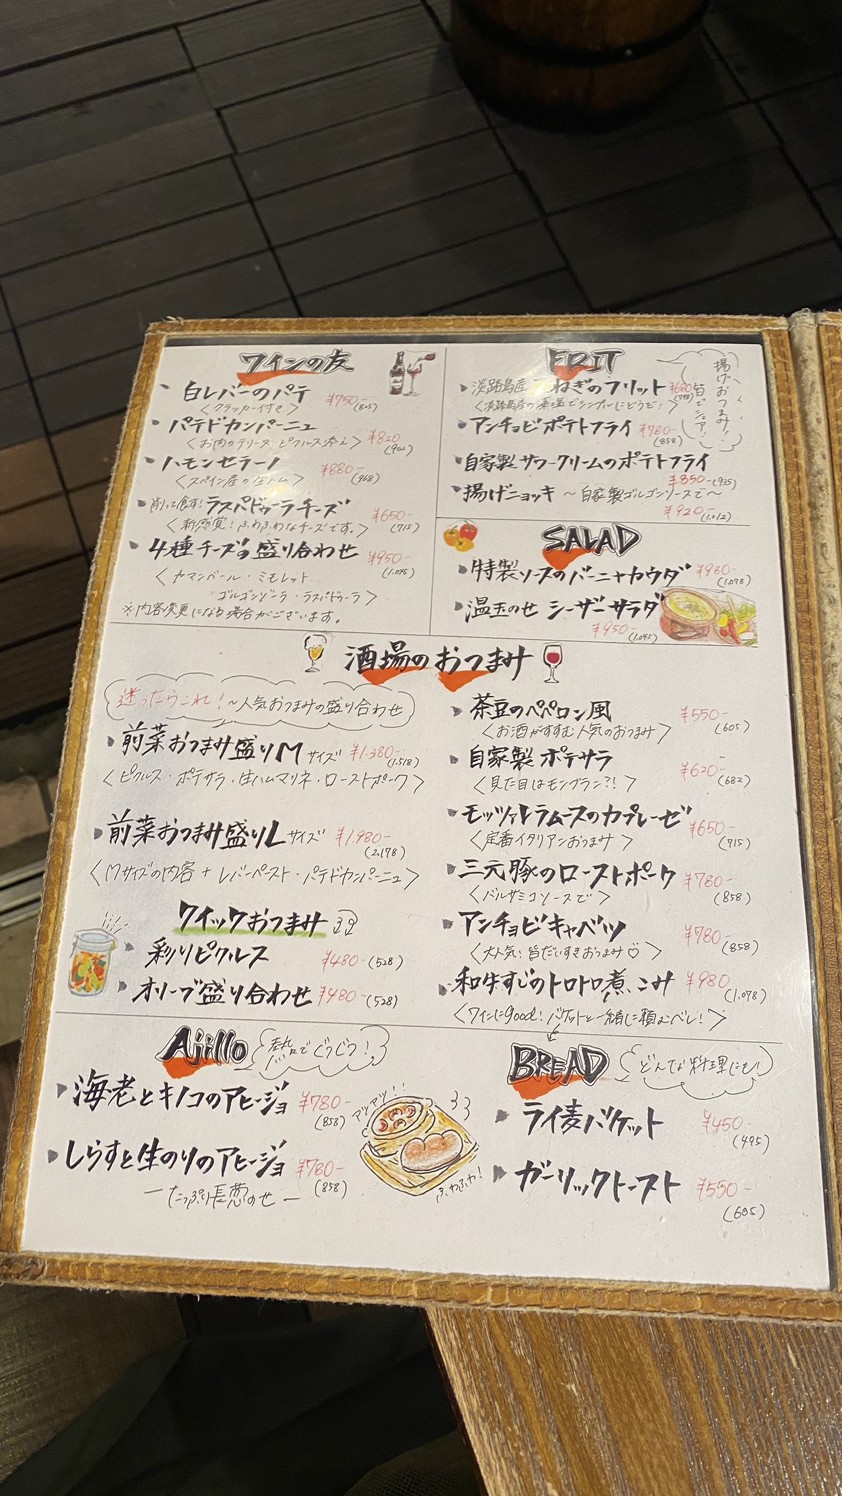 ワインの友
白レバーのパテ ¥750-(825)
〈クラッカー付き〉
パテドカンパーニュ ¥820(902)
〈お肉のテリーヌ ピクルス添え〉
ハモンセラーノ ¥880-(968)
〈スペイン産の生ハム〉
削って食す!ラスパドゥーラチーズ ¥650-(715)
〈新感覚!ふわふわなチーズです。〉
4種チーズの盛り合わせ ¥950-(1.045)
〈カマンベール・ミモレット
ゴルゴンゾーラ・ラスパドゥーラ〉
※内容変更になる場合がございます。
FRIT
揚げおつまみ!
淡路島産 ねぎのフリット
アンチョビポテトフライ ¥780-(858)
自家製サワークリームのポテトフライ
¥850-(935)
揚げニョッキ ~自家製ゴルゴンソースで~
¥920-(1.012)
SALAD
特製ソースのバーニャカウダ ¥980-(1.078)
温玉のせ シーザーサラダ
¥950-(1.045)
酒場のおつまみ
迷ったらこれ!~人気おつまみの盛り合わせ
前菜おつまみ盛りMサイズ ¥1.380-(1.518)
〈ピクルス・ポテサラ・生ハムマリネ・ローストポーク〉
前菜おつまみ盛りLサイズ ¥1.980-(2.178)
〈Mサイズの内容+レバーペースト・パテドカンパーニュ〉
クイックおつまみ
彩りピクルス ¥480-(528)
オリーブ盛り合わせ ¥480-(528)
茶豆のペペロン風 ¥550-(605)
〈お酒がすすむ人気のおつまみ〉
自家製ポテサラ ¥620-(682)
〈見た目はモンブラン?!〉
モッツァレラムースのカプレーゼ ¥650-(715)
〈定番イタリアンおつまみ〉
三元豚のローストポーク ¥780-(858)
〈バルサミコソースで〉
アンチョビキャベツ ¥780-(858)
〈大人気!皆だいすきおつまみ♡〉
和牛すじのトロトロ煮こみ ¥980(1.078)
〈ワインにgood!バケットと一緒に頼むべし!〉
Ajillo
熱々でぐつぐつ!
海老とキノコのアヒージョ ¥780-(858)
しらすと生のりのアヒージョ ¥780-(858)
ーたっぷり長葱のせー
アツアツ!!!
ふわふわ!
BREAD
どんな料理にも!
ライ麦バケット ¥450-(495)
ガーリックトースト ¥550-(605)